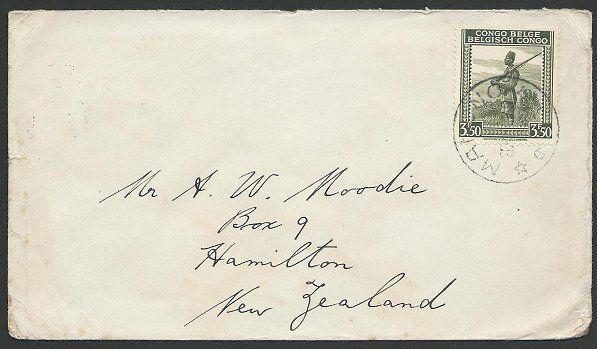 CONGO BELGE
BELGISCH CONGO
3.50 3.50
Mr A. W. Moodie
Box 9
Hamilton
New Zealand